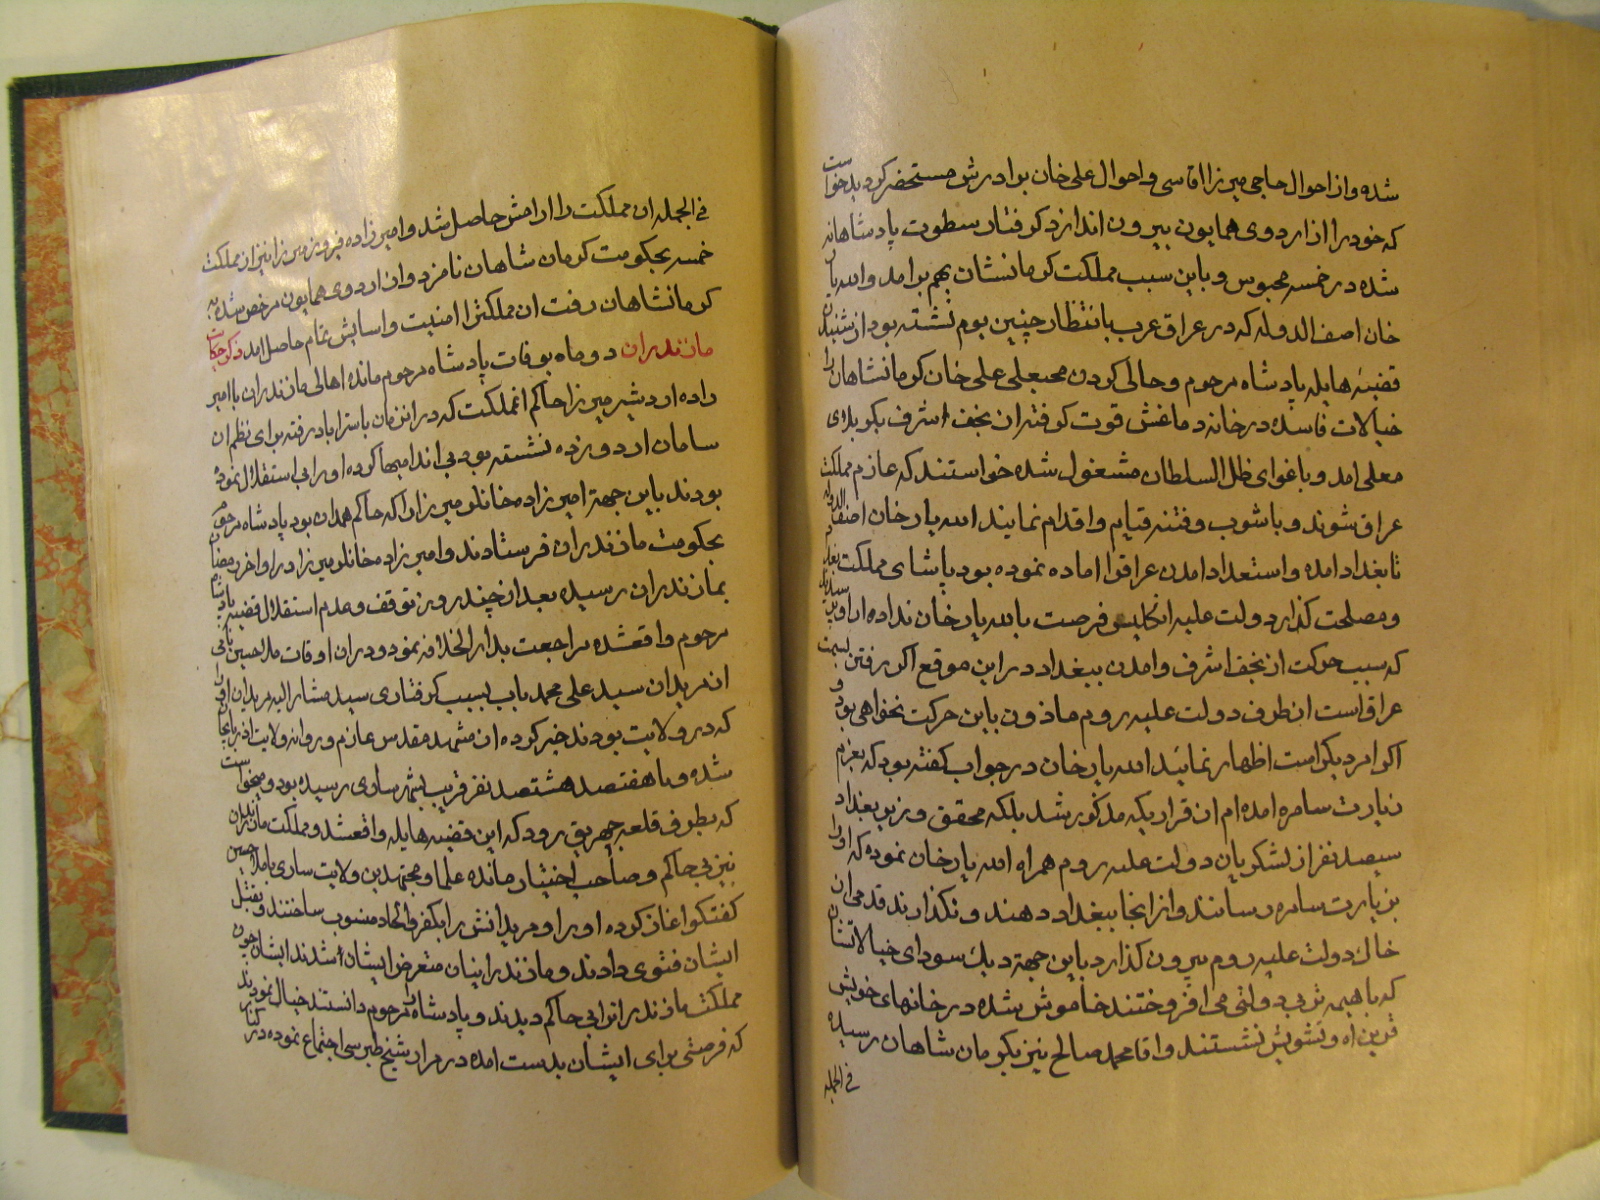 شده و از احوال حاجی میرزا اقاسی و احوال علی خان برادرش مستحضر کردید خواست
که خود را از اردوی همایون بیرون اندازد کرفتار سطوت پادشاهانه
شده در خمسه محبوس و باین سبب مملکت کرمانشان بهم برامد و الله یار
خان اصف الدوله که در عراق عرب بانتظار چنین یوم نشسته بود از شنیدن
قضیه هایله پادشاه مرحوم و حالی کردن محبعلی خان کرمانشاهان را
خیالات فاسده در خانه دماغش قوت کرفته از نجف اشرف بکربلای
معلی امد و باغوای ظل السلطان مشغول شده خواستند که عازم مملکت
عراق شوند و باشوب و فتنه قیام و اقدام نمایند الله یار خان اصف الدوله
تا بغداد امده و استعداد امدن عراق را اماده نموده بود پاشای مملکت بغداد
و مصلحت کذار دولت علیه انکلیس فرصت بالله یار خان نداده از او پرسیدند
که سبب حرکت از نجف اشرف و امدن ببغداد در این موقع اکر رفتن بسمت
عراق است از طرف دولت علیه روم ماذون باین حرکت نخواهی بود و
اکر امر دیکر است اظهار نمائید الله یار خان در جواب کفته بود که بعزم
زیارت سامره امده ام از قراریکه مذکور شد بلکه محقق وزیر بغداد
سیصد نفر از لشکریان دولت علیه روم همراه الله یار خان نموده که او را
بزیارت سامره رسانند و از انجا ببغداد دهند و نکذارند قدمی از
خاک دولت علیه روم بیرون کذارد باین جهة دیک سودای خیالاتشان
که با هیمه ش بی دولتی می افروختند خاموش شده در خانهای خویش
قرین اه و تشویش نشستند و اقا محمد صالح نیز بکرمان شاهان رسیده
فی الجمله
فی الجمله ان مملکت را ارامش حاصل شد و امیرزاده فیروز میرزا نیز از مملکت
خمسه بحکومت کرمان شاهان نامزد و از اردوی همایون مرخص شده به
کرمانشاهان رفت ان مملکت را امنیت و اسایش تمام حاصل امد ذکر حکایت
مازندران دو ماه بوفات پادشاه مرحوم مانده اهالی مازندران با امیر
زاده اردشیر میرزا حاکم انمملکت که در انزمان باستراباد رفته برای نظم ان
سامان اردو زده نشسته بود بی اندامیها کرده او را بی استقلال نموده
بودند باین جهة امیرزاده خانلر میرزا را که حاکم همدان بود پادشاه مرحوم
بحکومت مازندران فرستادند و امیرزاده خانلر میرزا در اواخر رمضان
بمازندران رسیده بعد از چند روز توقف و عدم استقلال قضیه پادشاه
مرحوم واقعشده مراجعت بدار الخلافه نمود و در ان اوقات ملا حسین نامی
از مریدان سید علی محمد باب بسبب کرفتاری سید مشار الیه مریدان او را
که در ولایت بودند خبر کرده از مشهد مقدس عازم و روانه ولایت اذربایجان
شده و با هفتصد هشتصد نفر قریب بشهر ساری رسیده بود و میخواست
که بطرف قلعه چهریق رود که این قضیه هایله واقعشد و مملکت مازندران
نیز بی حاکم و صاحب اختیار مانده علما و مجتهدین ولایت ساری با ملا حسین
کفتکو اغاز کرده او را و مریدانش را بکفر و الحاد منسوب ساختند و بقتل
ایشان فتوی دادند و مازندرانیان متعرض ایشان شدند ایشان چون
مملکت مازندران را بی حاکم دیدند و پادشاه را مرحوم دانستند خیال نمودند
که فرصتی برای ایشان بدست امده در مزار شیخ طبرسی اجتماع نموده در